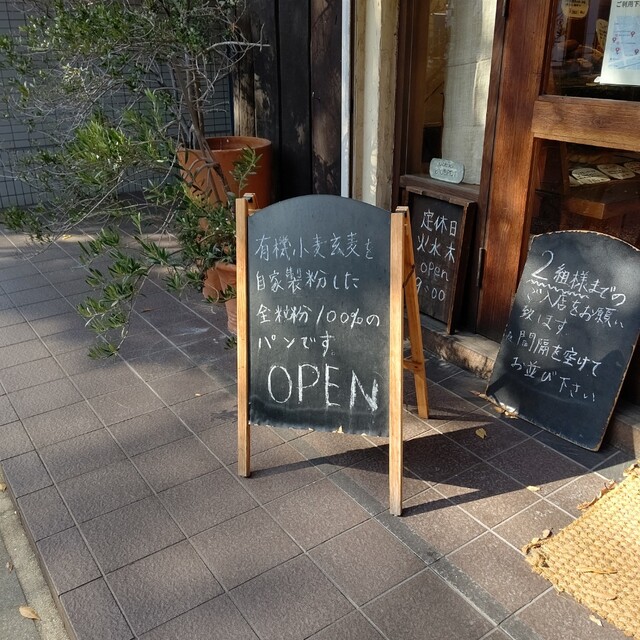 有機小麦玄麦を
自家製粉した
全粒粉100%の
パンです
OPEN
定休日
火水木
open
9:00
2組様までの
ご入店をお願い
致します
間隔を空けて
お並び下さい
ご利用下